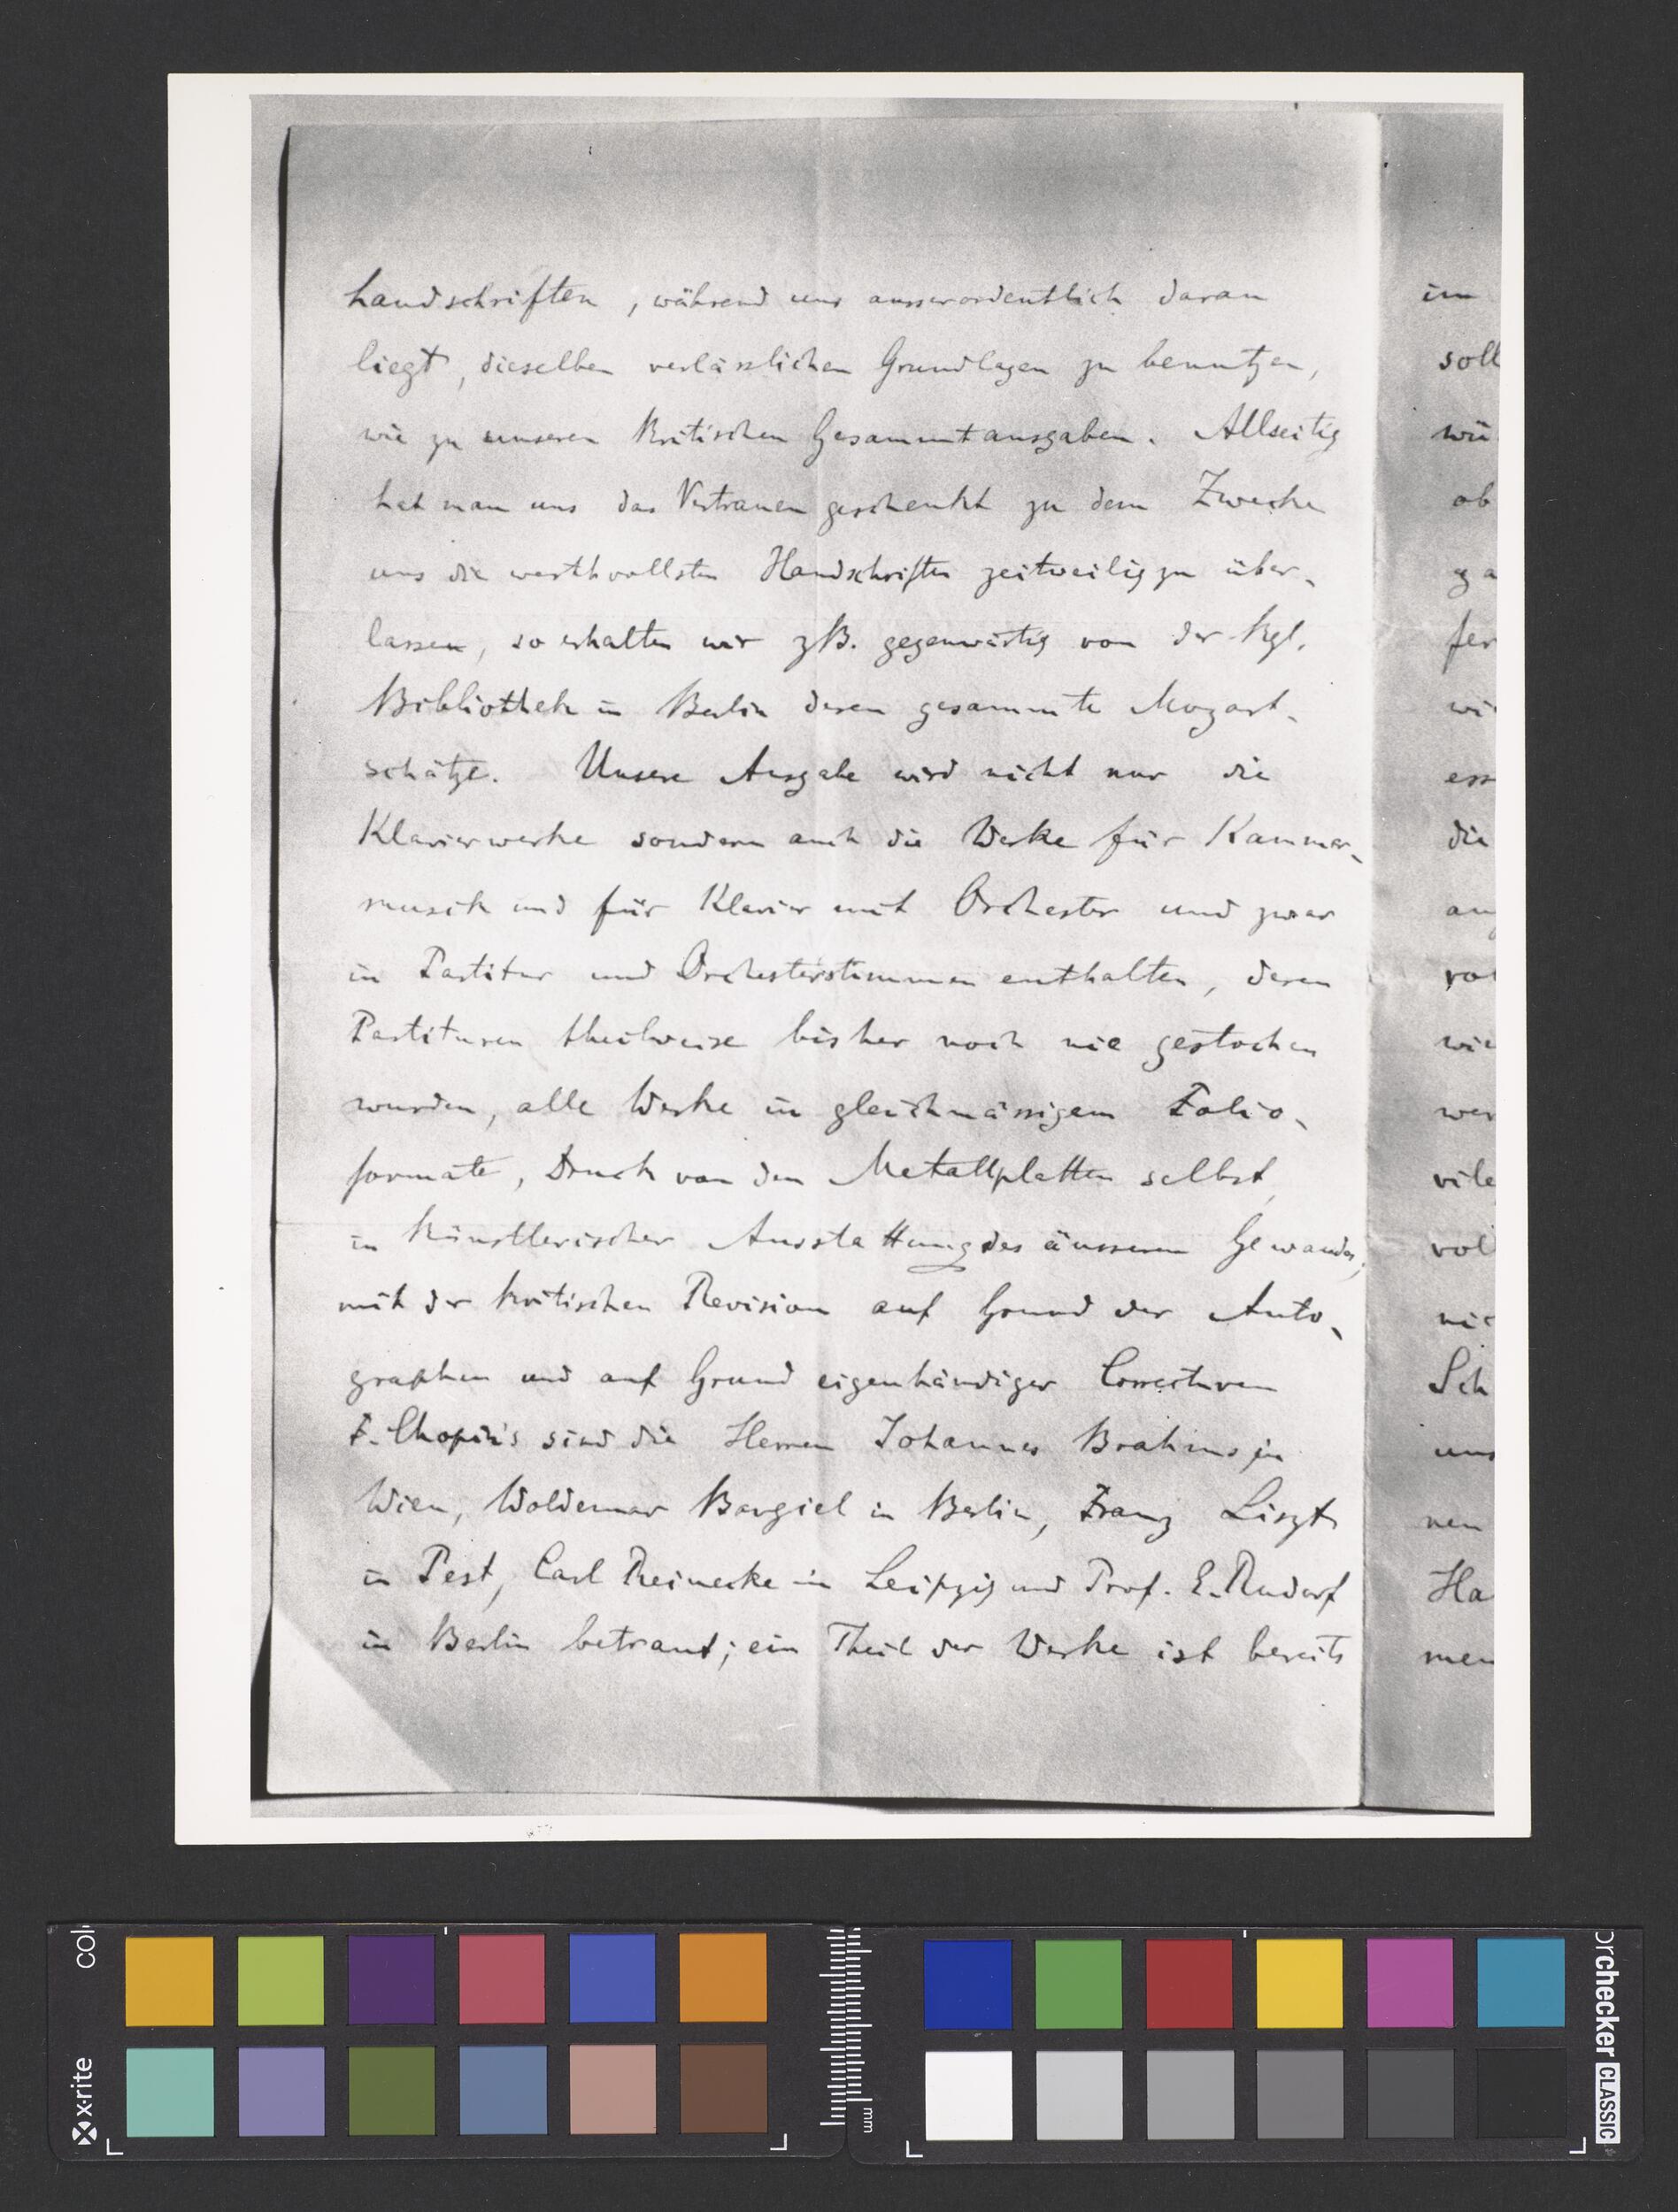 handschriften, während uns ausserordentlich daran
liegt, dieselben verlässlichen Grundlagen zu benutzen,
wie zu unseren kritischen Gesammtausgaben. Allseitig
hat man uns das Vertrauen geschenkt zu dem Zwecke
uns die werthvollsten Handschriften zeitweilig zu über-
lassen, so erhalten wir zB. gegenwärtig von der Kgl.
Bibliothek in Berlin deren gesammte Mozart-
schätze. Unsere Ausgabe wird nicht nur die
Klavierwerke sondern auch die Werke für Kammer-
musik und für Klavier mit Orchester und zwar
in Partitur und Orchesterstimmen enthalten, deren
Partituren theilweise bisher noch nie gestochen
wurden, alle Werke in gleichmässigem Folio-
formate, Druck von den Metallplatten selbst,
in künstlerischer Ausstattung des äusseren Gewandes,
mit der kritischen Revision auf Grund der Auto-
graphen und auf Grund eigenhändiger Correcturen
F. Chopin's sind die Herren Johannes Brahms in
Wien, Woldemar Bargiel in Berlin, Franz Liszt
in Pest, Carl Reinecke in Leipzig und Prof. E. Rudorf
in Berlin betraut; ein Theil der Werke ist bereits
im
soll
wü
ob
ga
fer
wi
ess
die
an
vo
wie
wer
vile
vol
nic
Sch
uns
nen
Ha
men
x-rite
col
mm
orchecker CLASSIC